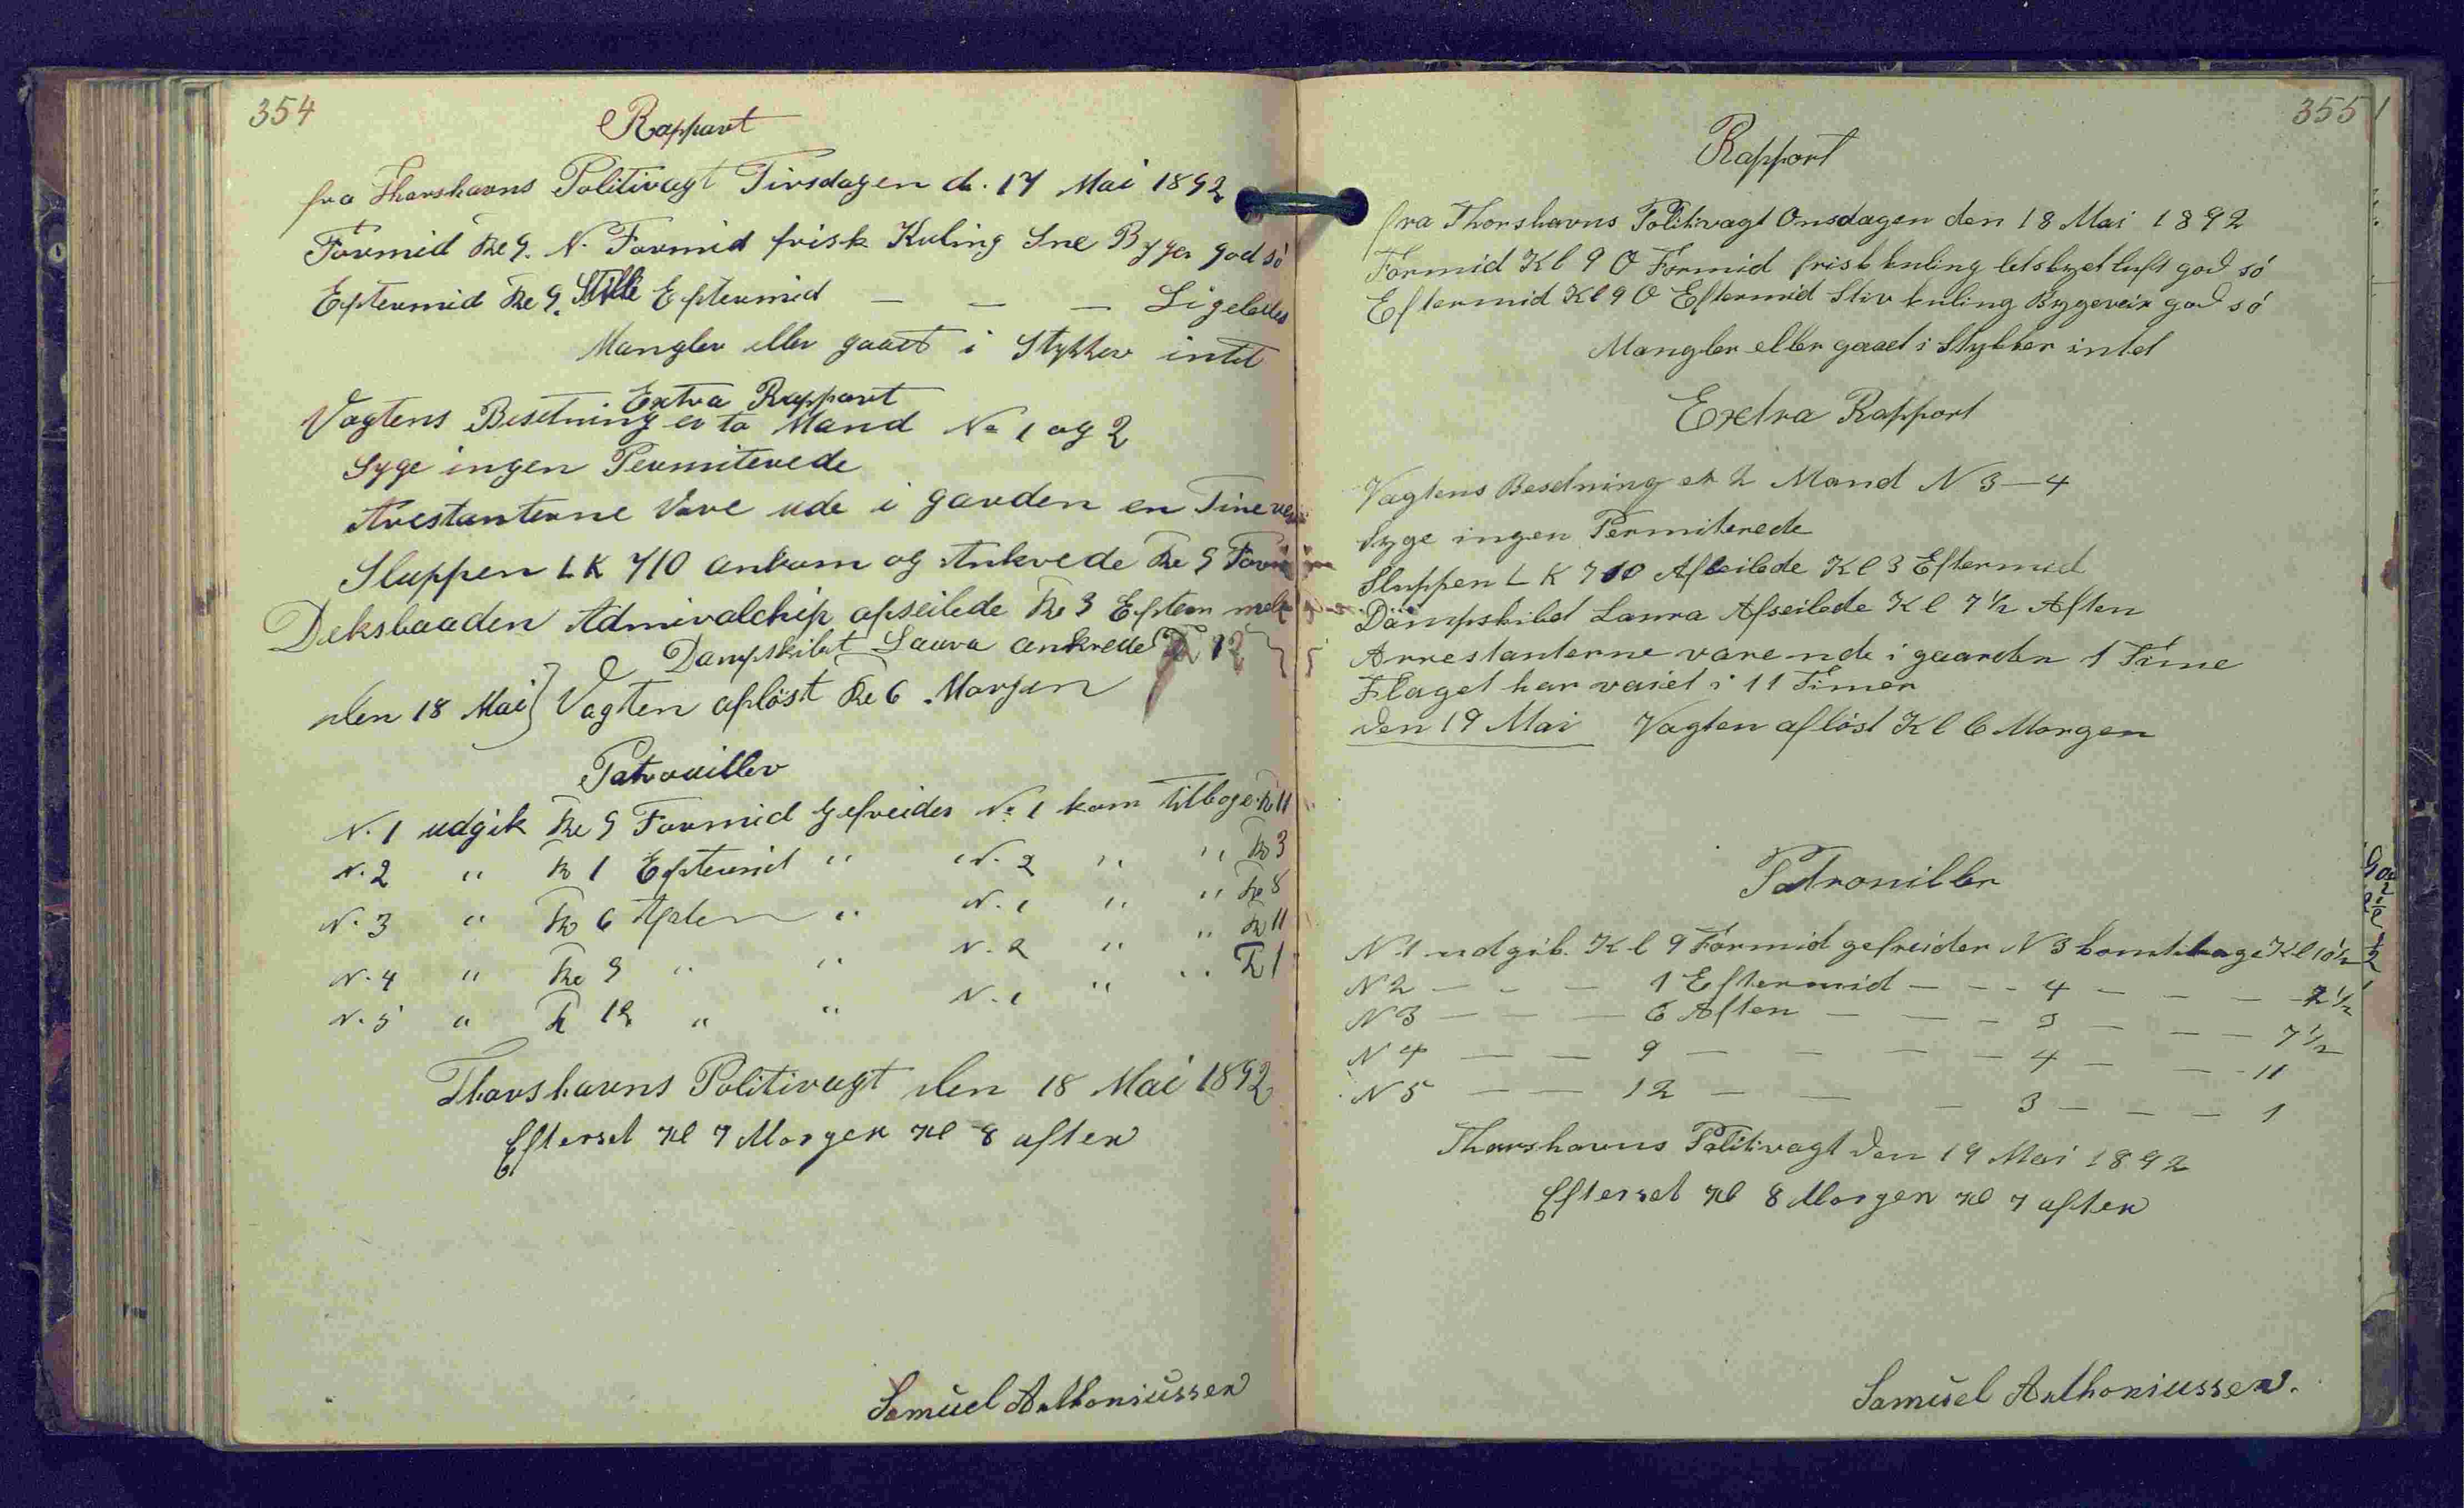 354
Rappart
fra Thorshavns Politivagt Tirsdagen d. 17 Mai 1892
Formid Kl 9. N. Formid frisk Kuling Sne Byger god sö
Eftermid Kl 9. Stille Eftermid — — — Ligeledes
Mangler eller gaaet i Stykker intet
Extra Rappart
Vagtens Besetning er to Mand No 1 og 2
Syge ingen Permiterede
Arestanterne Vare ude i garden en Time
Sluppen LK 710 ankom og Ankrede Kl 9 Form
Deksbaaden Admiralchip afseilede Kl 3 Efterm
Dampskibet Laura ankrede Kl 12
den 18 Mai } Vagten aflöst Kl 6 Morgen
Patrouiller
N. 1 udgik Kl 9 Formid gefreider No 1 kom tilbage Kl 11
N. 2 " Kl 1 Eftermid " N. 2 " " Kl 3
N. 3 " Kl 6 Aften " N. 1 " " Kl 8
N. 4 " Kl 9 " " N. 2 " " Kl 11
N. 5 " Kl 12 " " N. 1 " " Kl 1
Thorshavns Politivagt den 18 Mai 1892
Efterset Kl 7 Morgen Kl 8 aften
Samuel Anthoniussen
355
Rapport
fra Thorshavns Politivagt Onsdagen den 18 Mai 1892
Formid Kl 9 O Formid frisk kuling letskyet luft god sö
Eftermid Kl 9 O Eftermid Stiv kuling Bygeveir god sö
Mangler eller gaaet i Stykker intet
Exstra Rapport
Vagtens Besetning er 2 Mand N 3—4
Syge ingen Permiterede
Sluppen L K 710 Afseilede Kl 3 Eftermid
Dampskibet Laura Afseilede Kl 7 1/2 Aften
Arrestanterne vare ude i gaarden 1 Time
Flaget har vaiet i 11 Timer
den 19 Mai Vagten aflöst Kl 6 Morgen
Patrouiller
N 1 udgik Kl 9 Formid gefreider N 3 kom tilbage Kl 10 1/2
N 2 — — — 1 Eftermid — — — 4 — — — 2 1/2
N 3 — — — 6 Aften — — — 3 — — — 7 1/2
N 4 — — 9 — — — — 4 — — — 11
N 5 — — 12 — — — 3 — — — 1
Thorshavns Politivagt den 19 Mai 1892
Efterset Kl 8 Morgen Kl 7 aften
Samuel Anthoniussen.